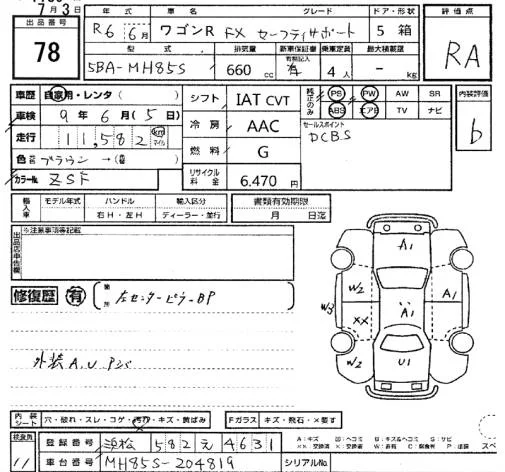 7月3日
出品番号 年式 車名 グレード ドア・形状 評価点
78 R6 6月 ワゴンR FX セーフティサポート 5 箱 RA
型式 排気量 新車保証書 乗車定員 最大積載量
有無記入
5BA-MH85S 660 cc 有 4人 - kg
車歴 自家用・レンタ( ) シフト IAT CVT 純正のみ PS PW AW SR 内装評価
車検 9年6月(5日) 冷房 AAC ABS エアB TV ナビ b
走行 11,582 km マイル セールスポイント
DCBS
色 ブラウン→( ) 燃料 G
カラーNo. ZSF リサイクル料金 6.470円
輸入車 モデル年式 ハンドル 輸入区分 書類有効期限
右H・左H ディーラー・並行 月 日迄
出品店申告欄 ※注意事項等記載
A1
修復歴 有 箇所 左センターピラーBP
W2 A1 A1
W3 XX
W2 U1
外装A.U.P
内装シート 穴・破れ・スレ・コゲ・汚れ・キズ・黄ばみ Fガラス キズ・飛石・×要す
A:キズ U:凹ミ
検査員 登録番号 浜松 582 え 4631
11 車台番号 MH85S-204819 シリアルNo.